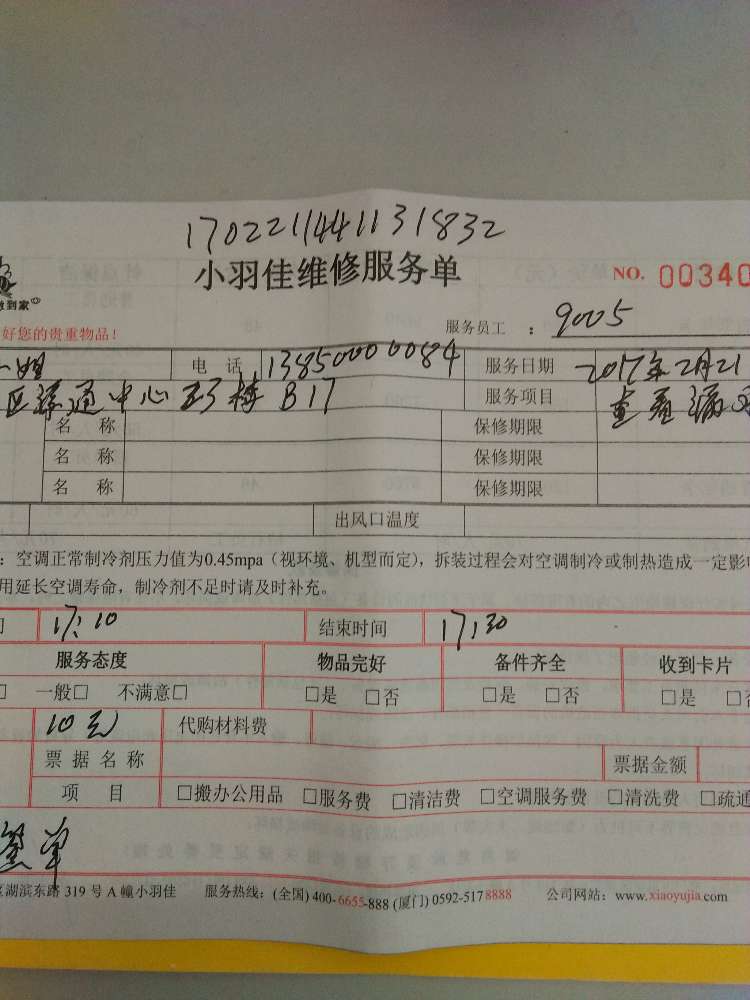 1702211441131832
小羽佳维修服务单 NO. 00340
做到家
好您的贵重物品! 服务员工 : 9005
姐 电 话 13850000084 服务日期 2017年2月21
区 通中心 栋 B17 服务项目 查看漏
名 称 保修期限
名 称 保修期限
名 称 保修期限
出风口温度
：空调正常制冷剂压力值为0.45mpa（视环境、机型而定），拆装过程会对空调制冷或制热造成一定影
用延长空调寿命，制冷剂不足时请及时补充。
17:10 结束时间 17:30
服务态度 物品完好 备件齐全 收到卡片
□ 一般□ 不满意□ □是 □否 □是 □否 □是 □
10元 代购材料费
票 据 名 称 票据金额
项 目 □搬办公用品 □服务费 □清洁费 □空调服务费 □清洗费 □疏通
签单
湖滨东路 319 号 A 幢小羽佳 服务热线：(全国) 400-6655-888 (厦门) 0592-5178888 公司网站：www.xiaoyujia.com